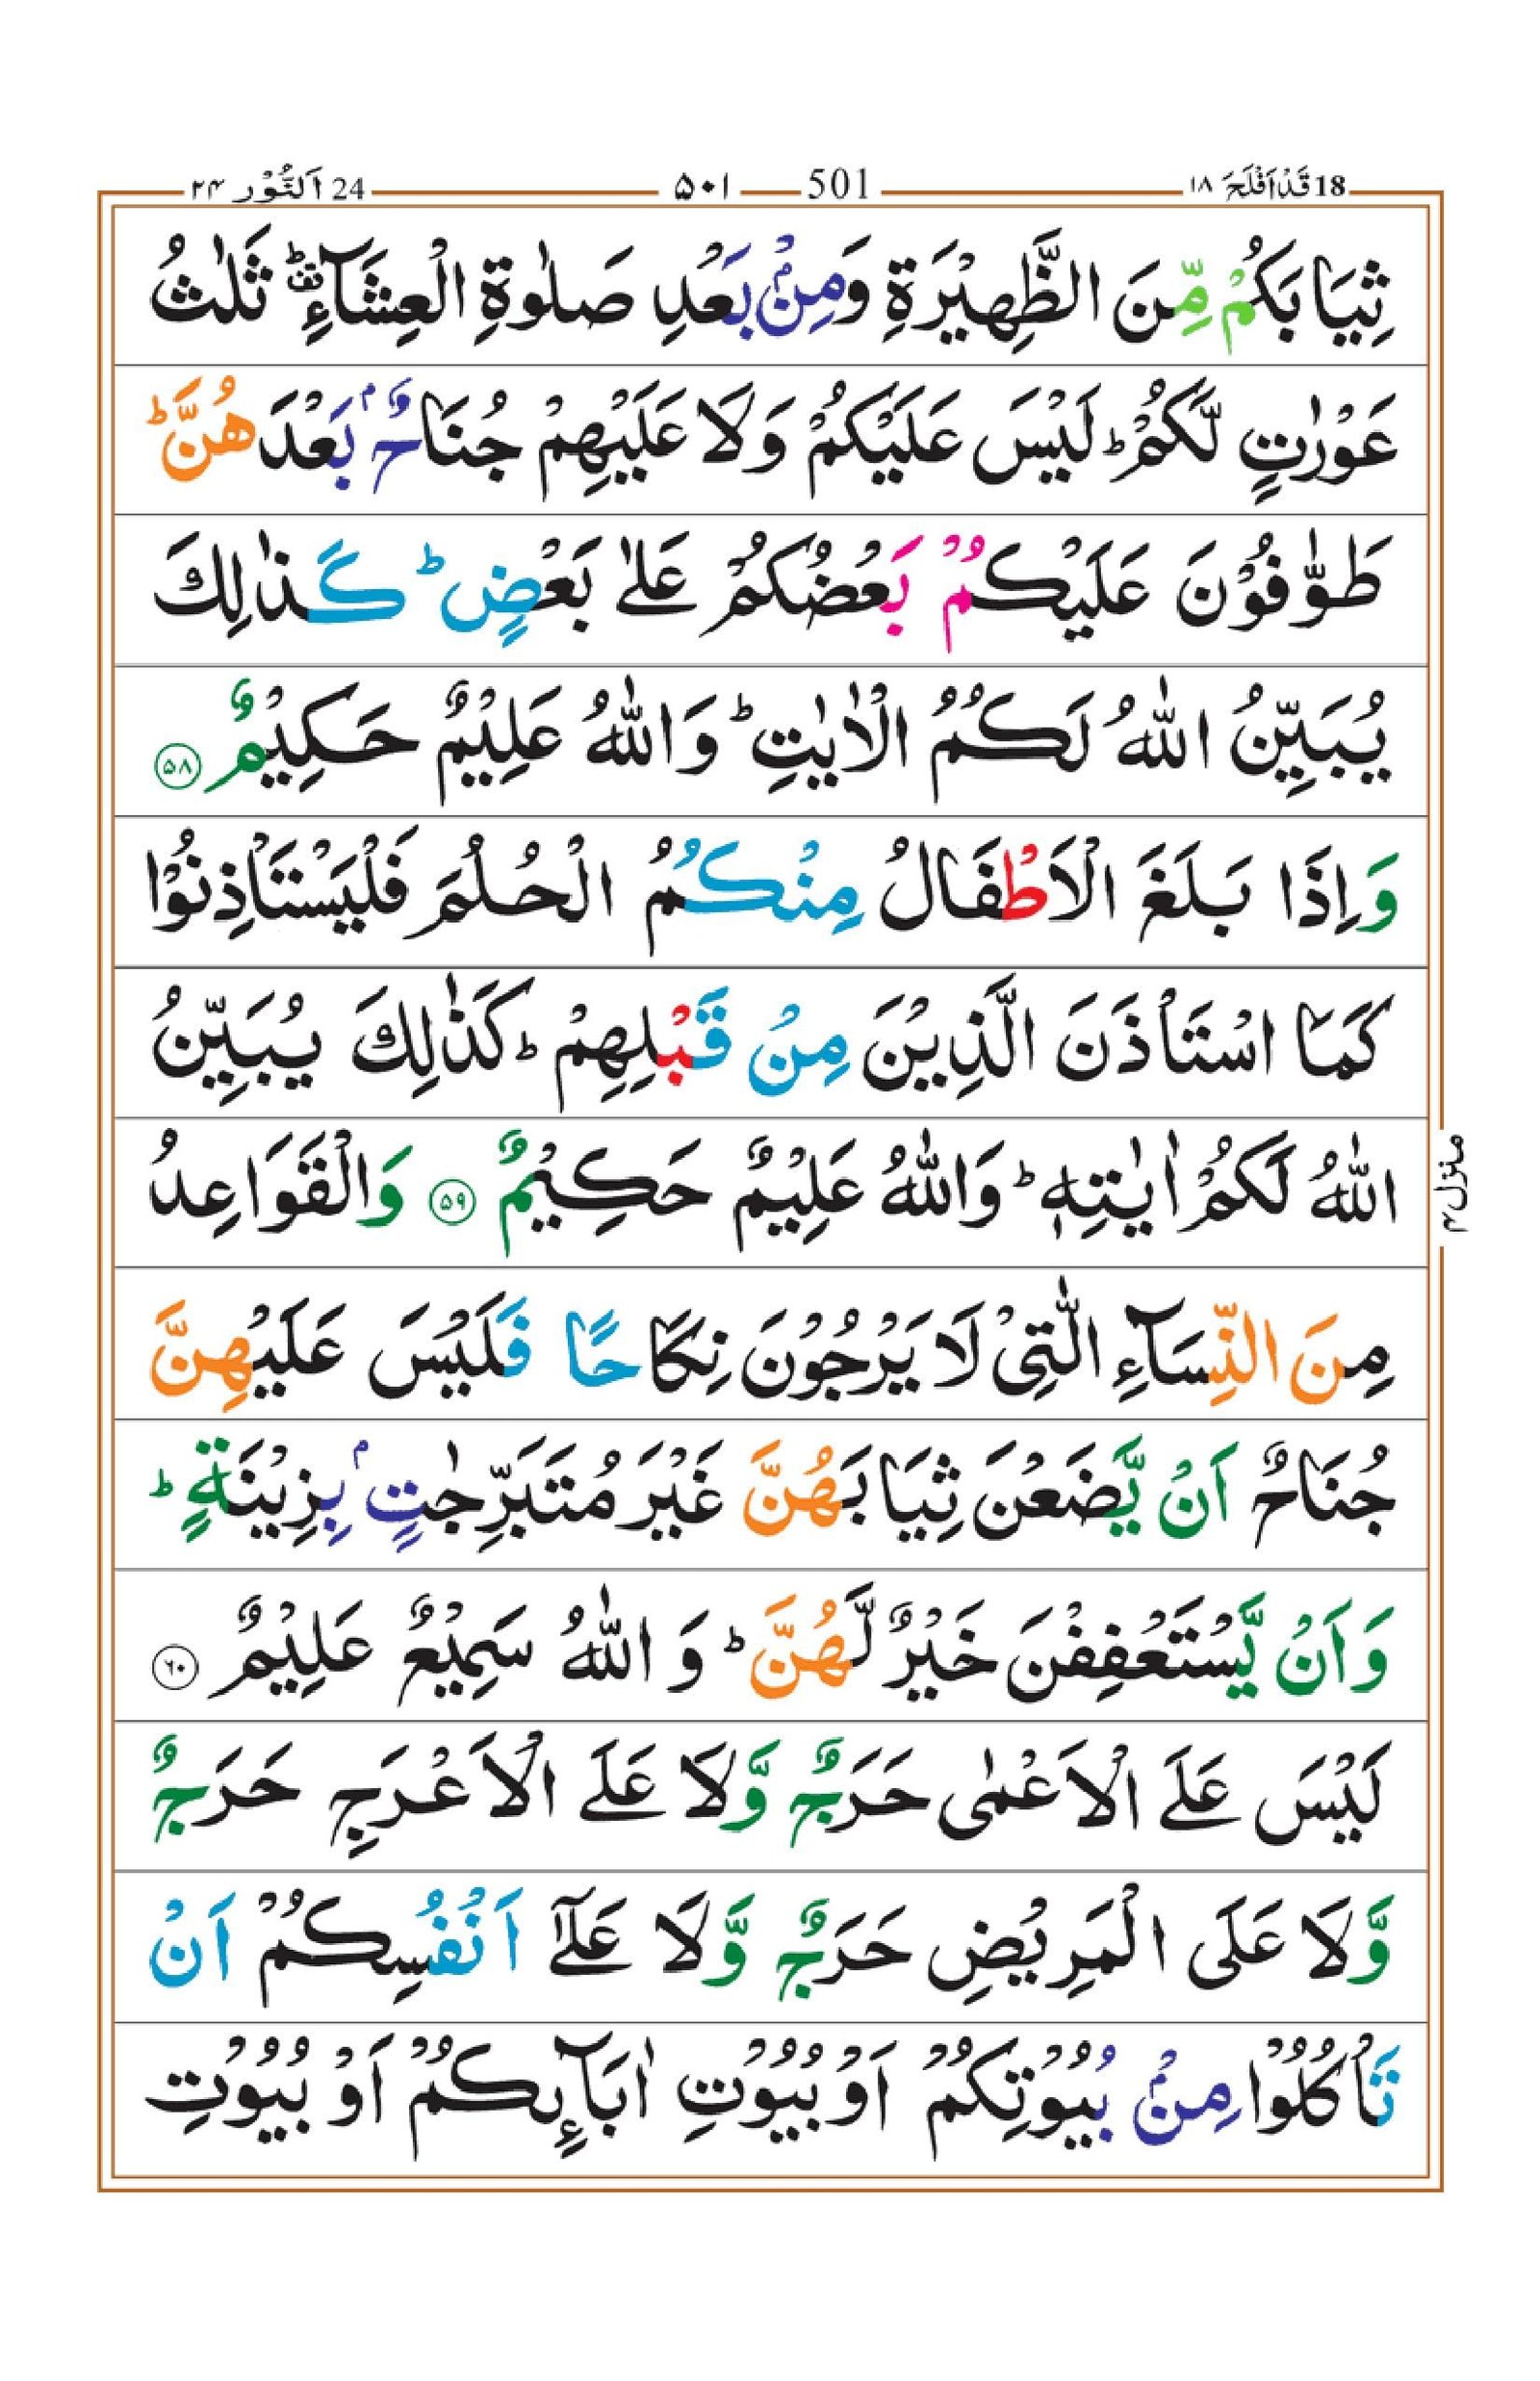 18 قَدْ اَفْلَحَ ١٨ 501 ٥٠١ 24 اَلنُّوْر ٢٤
ثِيَابَكُمْ مِّنَ الظَّهِيْرَةِ وَمِنْۢ بَعْدِ صَلٰوةِ الْعِشَآءِ ؕ۫ ثَلٰثُ
عَوْرٰتٍ لَّكُمْ ؕ لَيْسَ عَلَيْكُمْ وَلَا عَلَيْهِمْ جُنَاحٌۢ بَعْدَهُنَّ ؕ
طَوّٰفُوْنَ عَلَيْكُمْ بَعْضُكُمْ عَلٰى بَعْضٍ ؕ كَذٰلِكَ
يُبَيِّنُ اللّٰهُ لَكُمُ الْاٰيٰتِ ؕ وَاللّٰهُ عَلِيْمٌ حَكِيْمٌ ۝۵۸
وَاِذَا بَلَغَ الْاَطْفَالُ مِنْكُمُ الْحُلُمَ فَلْيَسْتَاْذِنُوْا
كَمَا اسْتَاْذَنَ الَّذِيْنَ مِنْ قَبْلِهِمْ ؕ كَذٰلِكَ يُبَيِّنُ
اللّٰهُ لَكُمْ اٰيٰتِهٖ ؕ وَاللّٰهُ عَلِيْمٌ حَكِيْمٌ ۝۵۹ وَالْقَوَاعِدُ
مِنَ النِّسَآءِ الّٰتِيْ لَا يَرْجُوْنَ نِكَاحًا فَلَيْسَ عَلَيْهِنَّ
جُنَاحٌ اَنْ يَّضَعْنَ ثِيَابَهُنَّ غَيْرَ مُتَبَرِّجٰتٍۭ بِزِيْنَةٍ ؕ
وَاَنْ يَّسْتَعْفِفْنَ خَيْرٌ لَّهُنَّ ؕ وَ اللّٰهُ سَمِيْعٌ عَلِيْمٌ ۝۶۰
لَيْسَ عَلَى الْاَعْمٰى حَرَجٌ وَّلَا عَلَى الْاَعْرَجِ حَرَجٌ
وَّلَا عَلَى الْمَرِيْضِ حَرَجٌ وَّلَا عَلٰٓى اَنْفُسِكُمْ اَنْ
تَاْكُلُوْا مِنْۢ بُيُوْتِكُمْ اَوْ بُيُوْتِ اٰبَآىِٕكُمْ اَوْ بُيُوْتِ
منزل ٤